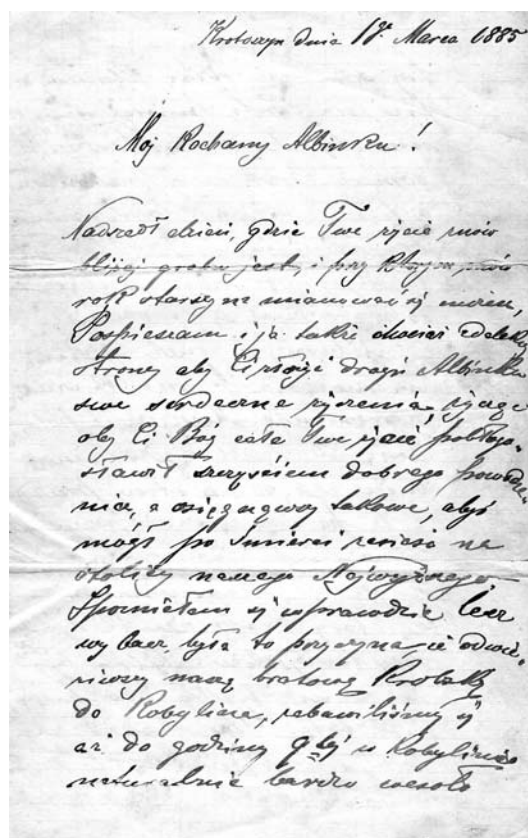 Krotoszyn dnia 1go Marca 1885
Mój Kochany Albinku!
Nadszedł dzień, gdzie Twe życie znów
bliżej grobu jest, i przy którym znów
rok starszy na mianować się możem,
Pospieszam i ja także chociaż z dalekiej
strony aby Ci złożyć drogi Albinku
swe serdeczne życzenia, życząc
oby Ci Bóg całe Twe życie, pobłogo-
sławił szczęściem dobrego powodze-
nia, a osięgnąwszy takowe, abyś
mógł po śmierci zasiąść na
stolicy naszego Najwyższego
Spóźniłem się wprawdzie lecz
wybacz, była to przyczyna, iż odwie-
ziwszy naszą bratową
do Kobylina, zabawiliśmy się
aż do godziny 9téj w Kobylinie
naturalnie bardzo wesoło